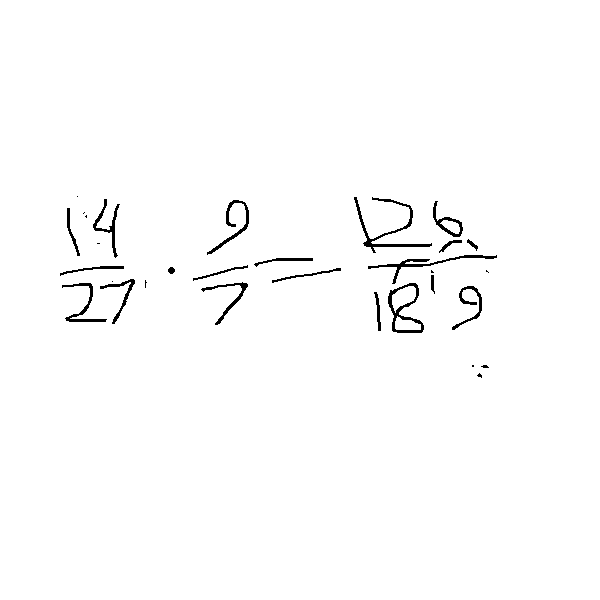 14/27 · 9/7 = 126/189